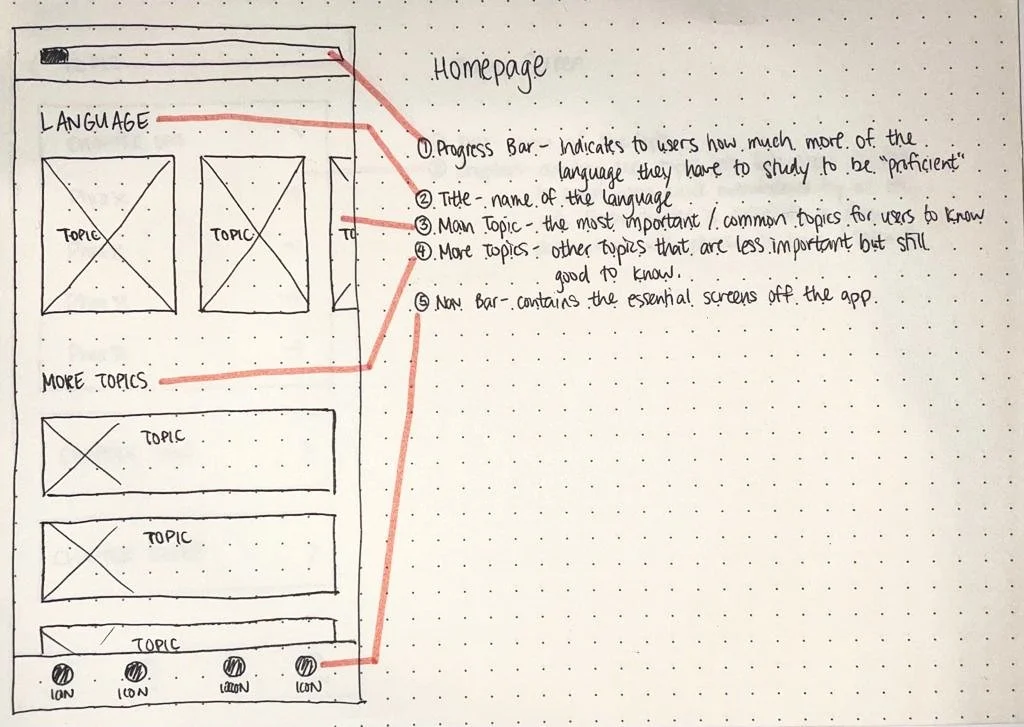 Homepage
LANGUAGE
TOPIC
TOPIC
TO
MORE TOPICS
TOPIC
TOPIC
TOPIC
ICON
ICON
ICON
① Progress Bar - Indicates to users how much more of the
language they have to study to be "proficient"
② Title - name of the language
③ Main Topic - the most important / common topics for users to know
④ More Topics - other topics that are less important but still
good to know.
⑤ Nav Bar - contains the essential screens off the app.